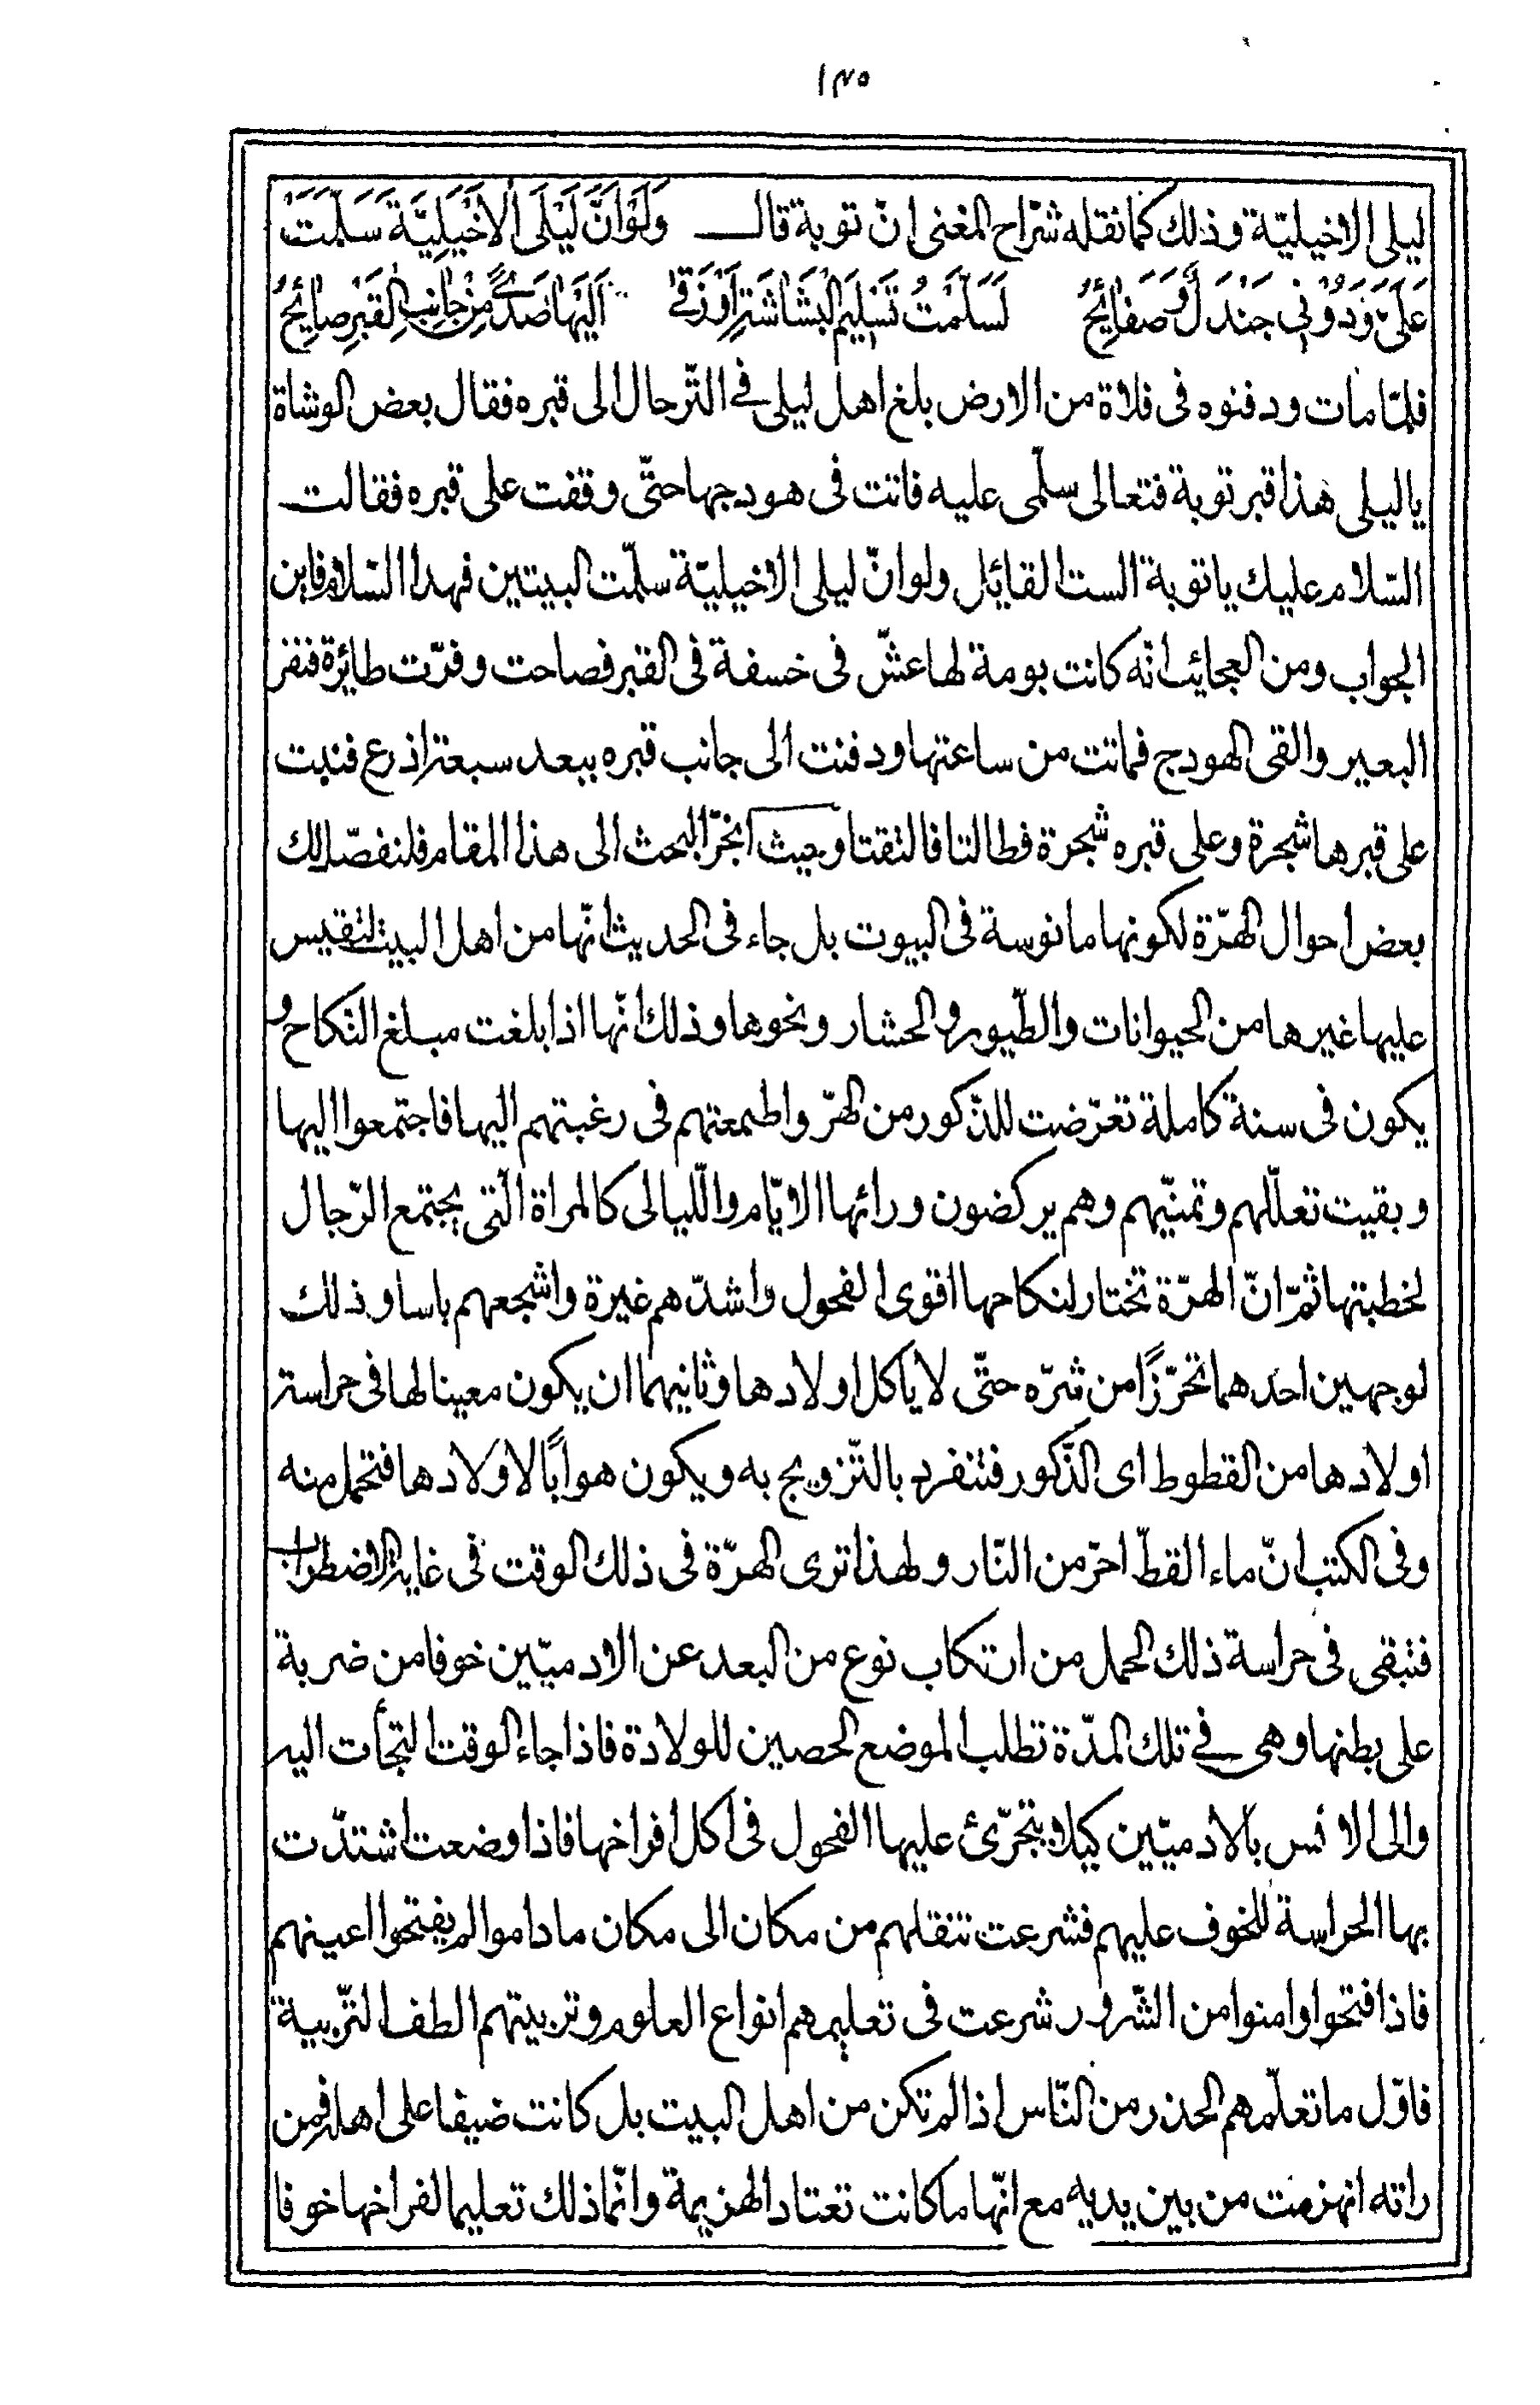 ١٣٥
ليلى الاخيليّة وذلك كما نقله شرّاح المغنى انّ توبة قال وَلَوْاَنَّ لَيْلَى الْاَخْيَلِيَّةَ سَلَّمَتْ
عَلَىَّ وَدُوْنِى جَنْدَلٌ وَصَفَائِحُ لَسَلَّمْتُ تَسْلِيمَ الْبَشَاشَةِ اَوْزَقٰى اِلَيْهَا صَدًى مِنْ جَانِبِ الْقَبْرِ صَائِحُ
فلمّا مات ودفنوه فى فلاة من الارض بلغ اهل ليلى فى التّرحال الى قبره فقال بعض الوشاة
يا ليلى هذا قبر توبة فتعالى سلّمى عليه فاتت فى هودجها حتّى وقفت على قبره فقالت
السّلام عليك يا توبة الست القائل ولوانّ ليلى الاخيليّة سلّمت البيتين فهذا السّلام فاين
الجواب ومن العجائب انّه كانت بومة لها عشّ فى خسفة فى القبر فصاحت وفرّت طائرة فنفر
البعير والقى الهودج فماتت من ساعتها ودفنت الى جانب قبره ببعد سبعة اذرع فنبت
على قبرها شجرة وعلى قبره شجرة فطالتا فالتقتا وحيث انجرّ البحث الى هذا المقام فلنفصّل لك
بعض احوال الهرّة لكونها مانوسة فى البيوت بل جاء فى الحديث انّها من اهل البيت لتقيس
عليها غيرها من الحيوانات والطّيور والحشار ونحوها وذلك انّها اذا بلغت مبلغ النّكاح و
يكون فى سنة كاملة تعرّضت للذّكور من الهرّ واطمعتهم فى رغبتهم اليها فاجتمعوا اليها
وبقيت تعلّلهم وتمنّيهم وهم يركضون ورائها الايّام واللّيالى كالمراة الّتى يجتمع الرّجال
لخطبتها ثمّ انّ الهرّة تختار لنكاحها اقوى الفحول واشدّهم غيرة واشجعهم باسا وذلك
لوجهين احدهما تحرّزًا من شرّه حتّى لا ياكل اولادها وثانيهما ان يكون معينا لها فى حراسة
اولادها من القطوط اى الذّكور فتنفرد بالتّزويج به ويكون هو ابًا لاولادها فتحمل منه
وفى الكتب انّ ماء القطّ احرّ من النّار ولهذا ترى الهرّة فى ذلك الوقت فى غاية الاضطراب
فتبقى فى حراسة ذلك الحمل من ارتكاب نوع من البعد عن الادميّين خوفا من ضربة
على بطنها وهى فى تلك المدّة تطلب الموضع الحصين للولادة فاذا جاء الوقت التجأت اليه
والى الانس بالادميّين كيلا يتجرّئ عليها الفحول فى اكل افراخها فاذا وضعت اشتدّت
بها الحراسة للخوف عليهم فشرعت تنقلهم من مكان الى مكان ما داموا لم يفتحوا اعينهم
فاذا فتحوا وامنوا من الشّرور شرعت فى تعليمهم انواع العلوم وتربيتهم الطف التّربية
فاوّل ما تعلّمهم الحذر من النّاس اذا لم تكن من اهل البيت بل كانت ضيفا على اهله فمن
راته انهزمت من بين يديه مع انّها ما كانت تعتاد الهزيمة وانّما ذلك تعليما لفراخها خوفا